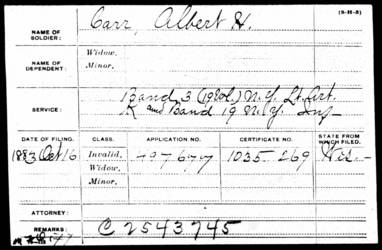 (3-H-8)
NAME OF SOLDIER: Carr, Albert H.
NAME OF DEPENDENT: Widow,
Minor,
SERVICE: Band 3 N.Y. Lt. Art.
K and Band 19 N.Y. Inf
DATE OF FILING. CLASS. APPLICATION NO. CERTIFICATE NO. STATE FROM WHICH FILED.
1883 Oct 16 Invalid, 497677 1035269 Wis.
Widow,
Minor,
ATTORNEY:
REMARKS: C 2543745